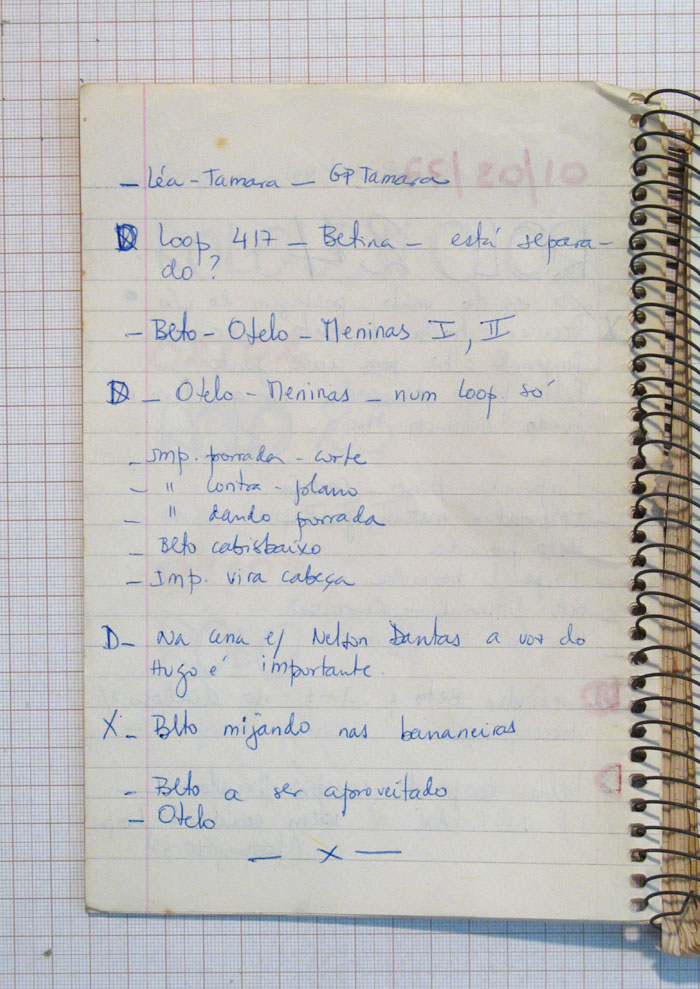 – Léa – Tamara – GP Tamara
D Loop 417 – Betina – está separa-
do?
– Beto – Otelo – Meninas I, II
D – Otelo – Meninas – num loop só
– Imp. porrada – corte
– " contra-plano
– " dando porrada
– Beto cabisbaixo
– Imp. vira cabeça
D – Na cena c/ Nelson Dantas a voz do
Hugo é importante.
X – Beto mijando nas bananeiras
– Beto a ser aproveitado
– Otelo
— x —